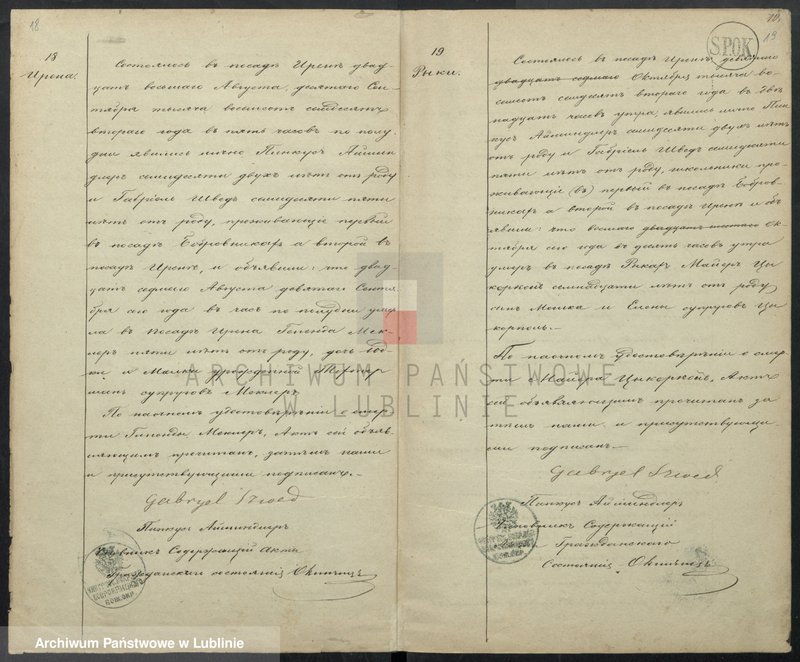 18
18
Ирена.
Состоялось въ посадѣ Иренѣ двад-
цать восьмаго Августа, десятаго Сен-
тября тысяча восемьсотъ семьдесятъ
втораго года въ пять часовъ по полу-
дни явились лично Пинкусъ Айзмин
длеръ семидесяти двухъ лѣтъ отъ роду
и Габріоль Шведъ семидесяти пяти
лѣтъ отъ роду, проживающіе первый
въ посадѣ Бобровникахъ а второй въ
посадѣ Иренѣ, и объявили: что двад-
цать седьмаго Августа девятаго Сентя-
бря сего года въ часъ по полудни умер
ла въ посадѣ Ирена
пяти лѣтъ отъ роду, дочь
и Малки урожденной
супруговъ
По наочномъ удостовѣреніи о смер
ти Актъ сей объяв-
ляющимъ прочитанъ, затѣмъ нами
и присутствующими подписанъ.
Gabryel Szwed
Пинкусъ Айзминдлеръ
Чиновникъ Содержащій Акты
Гражданскаго состоянія
19
Рыки.
SPOK
19
Состоялось въ посадѣ Иренѣ девятаго
двадцать седьмаго Октября тысяча во-
семьсотъ семьдесятъ втораго года въ двѣ
надцать часовъ утра, явились лично Пин
кусъ Айзминдлеръ семидесяти двухъ лѣтъ
отъ роду и Габріель Шведъ семидесяти
пяти лѣтъ отъ роду, школьники про-
живающіе (въ) первый въ посадѣ Бобров-
никахъ а второй въ посадѣ Иренѣ и объ
явили: что восьмаго двадцать шестаго Ок-
тября сего года въ десять часовъ утра
умеръ въ посадѣ Рыкахъ Майеръ Цы
коркойсъ семнадцати лѣтъ отъ роду
сынъ Мошка и Елены супруговъ Цы
По наочномъ удостовѣреніи о смер
ти Майера Актъ
сей объявляющимъ прочитанъ за
тѣмъ нами и присутствующи
ми подписанъ.
Gabryel Szwed
Пинкусъ Айзминдлеръ
Чиновникъ Содержащій
Гражданскаго
Состоянія
ARCHIWUM PAŃSTWOWE
W LUBLINIE
Archiwum Państwowe w Lublinie